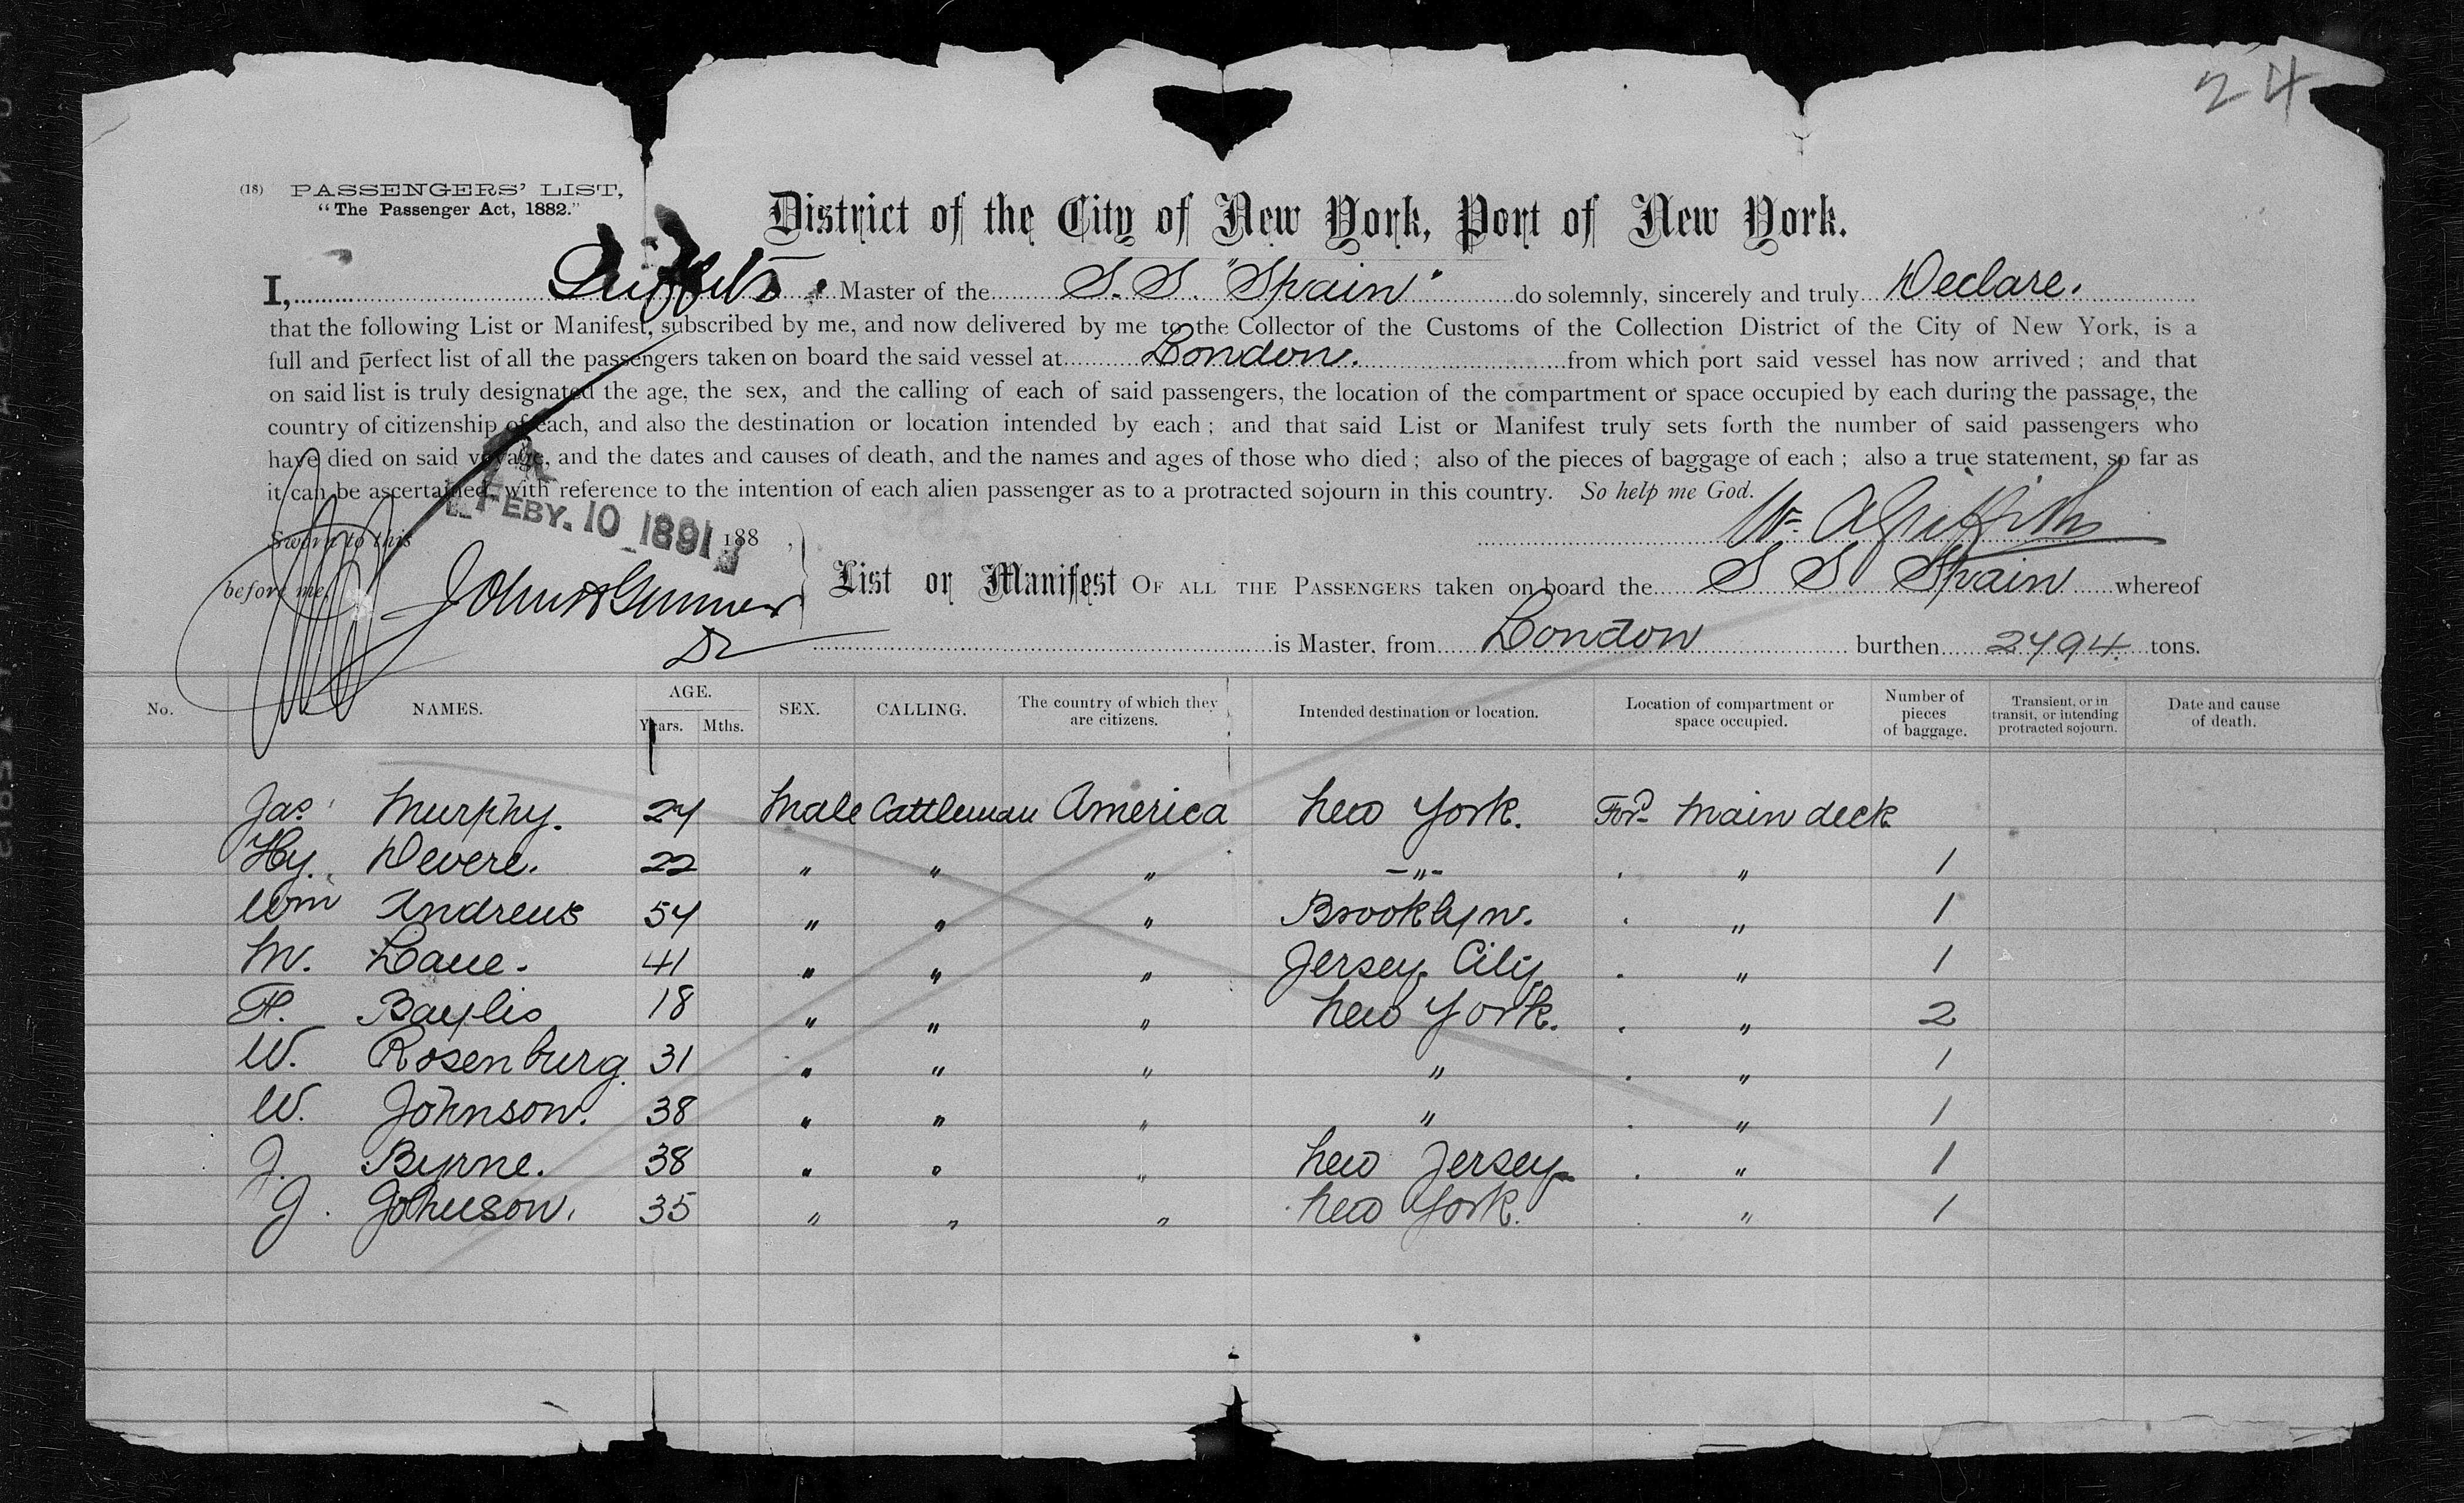 24
(18) PASSENGERS' LIST,
"The Passenger Act, 1882."
District of the City of New York, Port of New York.
I, Griffiths. Master of the S.S. "Spain" do solemnly, sincerely and truly Declare.
that the following List or Manifest, subscribed by me, and now delivered by me to the Collector of the Customs of the Collection District of the City of New York, is a
full and perfect list of all the passengers taken on board the said vessel at London. from which port said vessel has now arrived; and that
on said list is truly designated the age, the sex, and the calling of each of said passengers, the location of the compartment or space occupied by each during the passage, the
country of citizenship of each, and also the destination or location intended by each; and that said List or Manifest truly sets forth the number of said passengers who
have died on said voyage, and the dates and causes of death, and the names and ages of those who died; also of the pieces of baggage of each; also a true statement, so far as
it can be ascertained, with reference to the intention of each alien passenger as to a protracted sojourn in this country. So help me God.
Sworn to this FEBY. 10 1891 188 ,
W. A Griffiths
before me, John A Gunner
List or Manifest OF ALL THE PASSENGERS taken on board the S S Spain whereof
is Master, from London burthen 2794 tons.
No. NAMES. AGE. Years. Mths. SEX. CALLING. The country of which they are citizens. Intended destination or location. Location of compartment or space occupied. Number of pieces of baggage. Transient, or in transit, or intending protracted sojourn. Date and cause of death.
Jas Murphy. 24 Male Cattleman America New York. For'd Main deck
Hy. Devere. 22 " " " -"- . " 1
Wm Andrews 54 " " " Brooklyn. . " 1
M. Lane. 41 " " " Jersey City . " 1
H. Baylis 18 " " " New York. . " 2
W. Rosenburg. 31 " " " " . " 1
W. Johnson. 38 " " " " . " 1
J. Byrne. 38 " " " New Jersey . " 1
G. Johnson. 35 " " " New York. . " 1